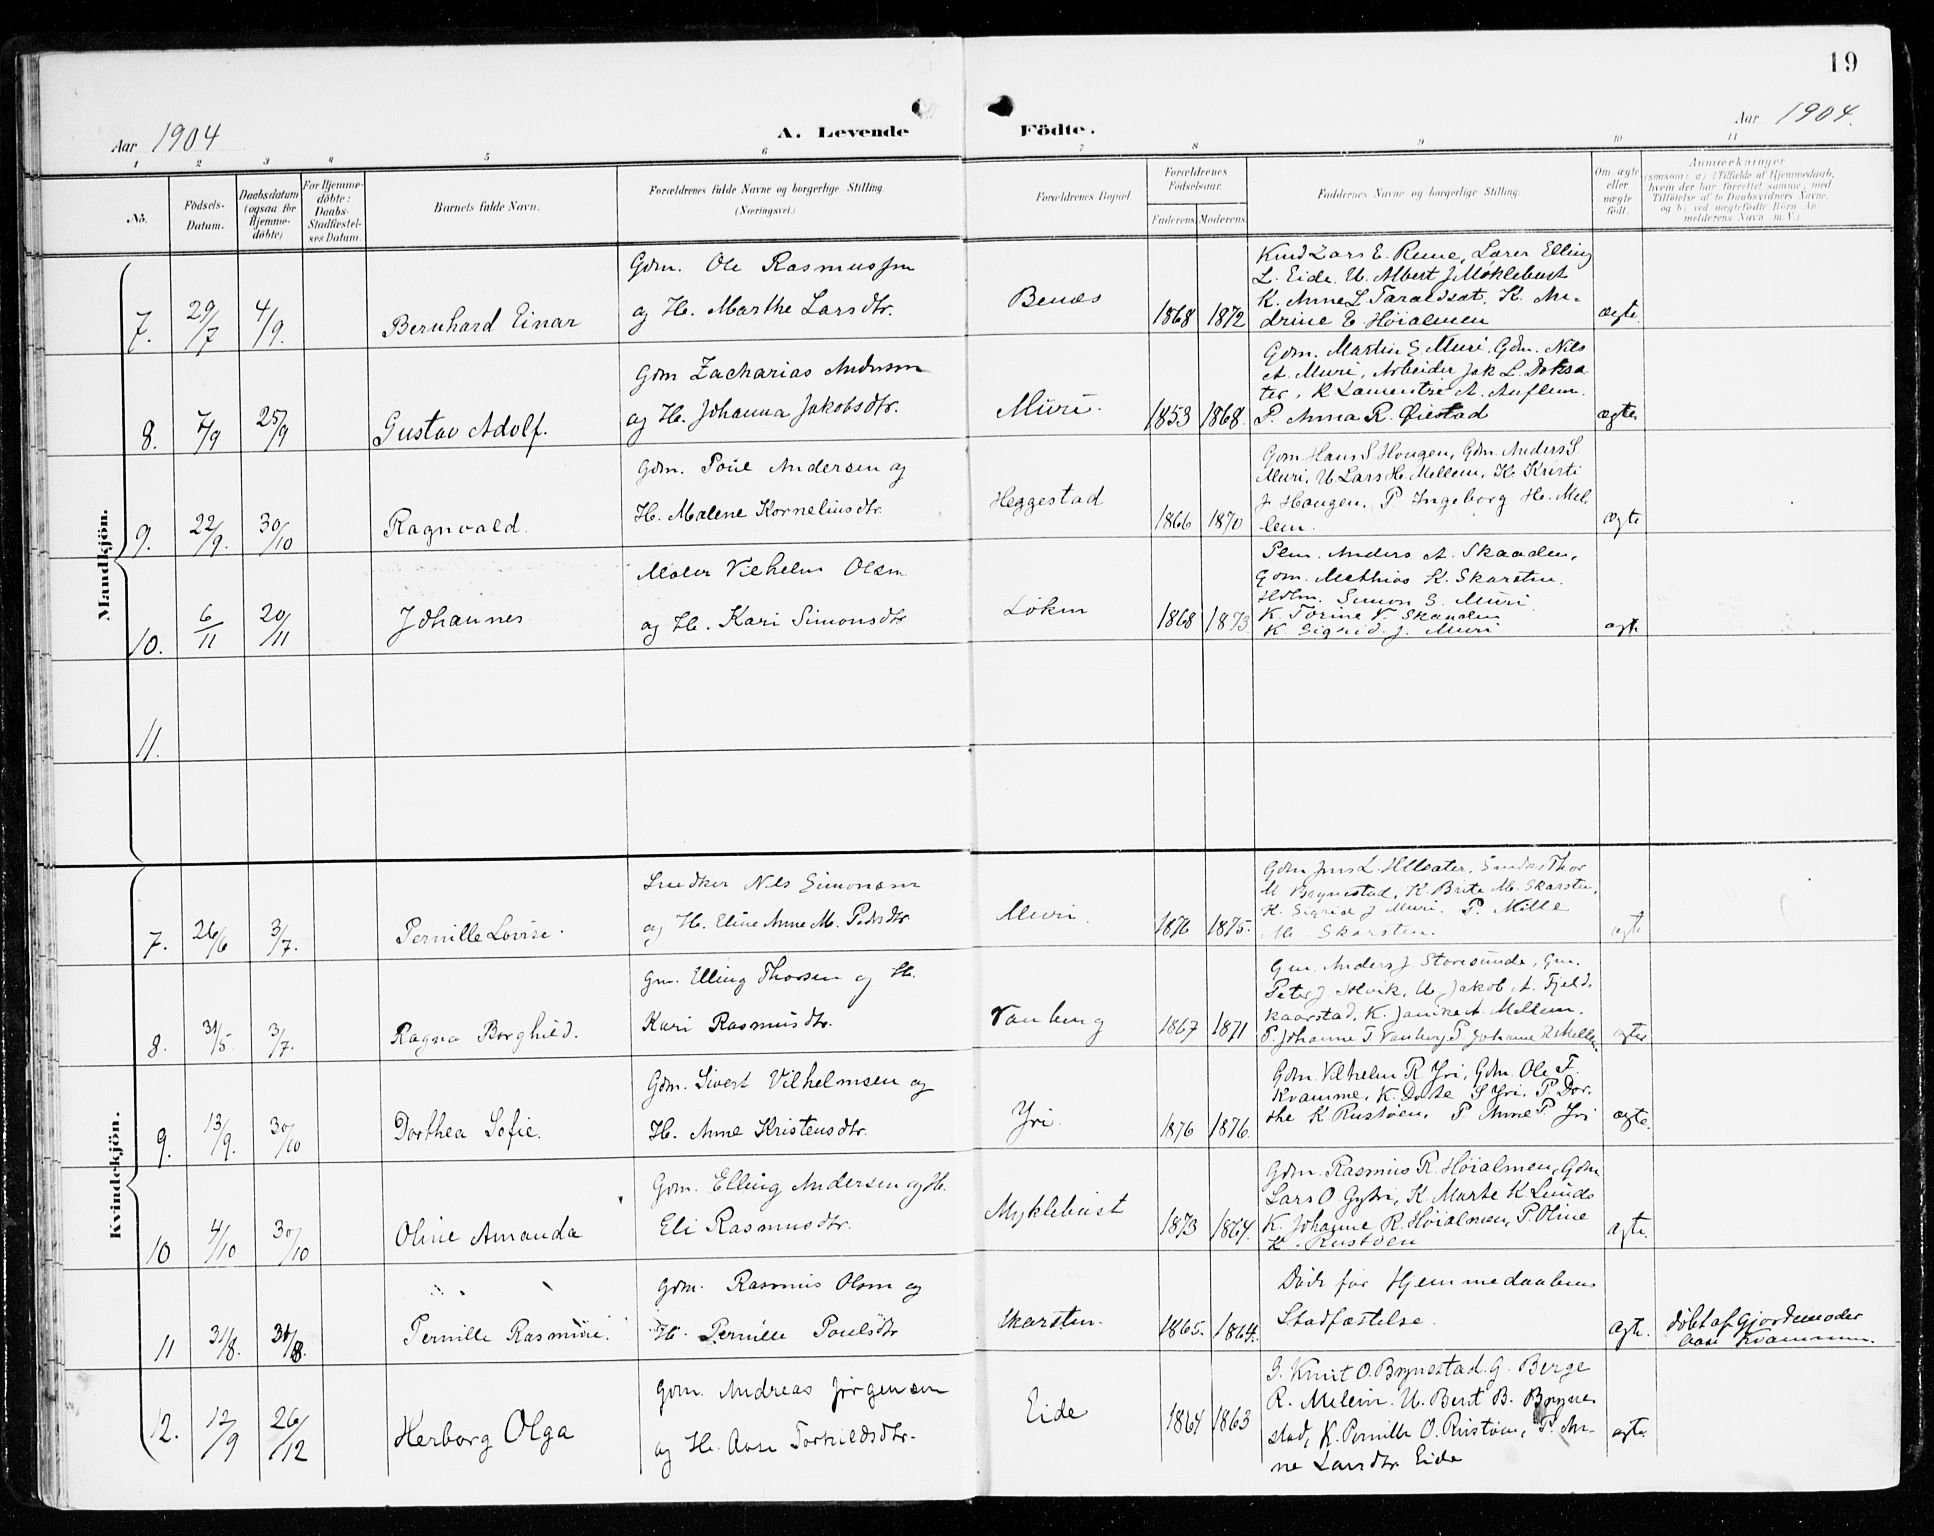 19
Aar 1904
A. Levende Födte.
Aar 1904.
1 2 3 4 5 6 7 8 9 10 11
No.
Födsels-Datum.
Daabsdatum (ogsaa for Hjemme-döbte)
For Hjemme-döbte: Daabs-Stadfæstel-ses Datum.
Barnets fulde Navn.
Forældrenes fulde Navne og borgerlige Stilling (Næringsvei.)
Forældrenes Bopæl.
Forældrenes Födselsaar.
Faderens. Moderens.
Faddernes Navne og borgerlige Stilling.
Om ægte eller uægte födt.
Anmærkninger
(saasom: a) i Tilfælde af Hjemmedaab,
hvem der har forrettet samme, med
Tilföielse af to Daabsvidners Navne,
og b) ved uægtefödte Börn An-
melderens Navn m. V.)
Mandkjön.
7. 29/7 4/9. Bernhard Einar
Gdm. Ole Rasmussen
og H. Marthe Larsdtr.
Benæs 1868 1872
Lars E. Rune, Lærer Elling
L. Eide. U. Albert J Myklebust
K. Anne L Taraldsæt, K. An-
drine E Høialmen
ægte.
8. 7/9 25/9 Gustav Adolf.
Gdm Zacharias Andersen
og H. Johanna Jakobsdtr.
Muri. 1853 1868.
Gdm. Martin S. Muri, Gdm. Nils
A. Muri, Arbeider Jak L.
K A. Auflem.
P. Anna R. Øiestad
ægte
9. 22/9. 30/10 Ragnvald.
Gdm. Poul Andersen og
H. Malene Korneliusdtr.
Heggestad 1866 1870
Gdm Hans S Hougen, Gdm. Anders S
Muri, U Lars H. Mellem, K. Kristi
J Haugen. P Ingeborg H. Mel-
lem.
ægte
10. 6/11 20/11 Johannes
Maler Vilhelm Olsen
og H. Kari Simonsdtr
Løken 1868 1873
Anders A. Skaaden,
Gdm. Mathias K. Skarsten.
Simon S. Muri
K. Torine V. Skaaden
K Sigrid J. Muri
ægte
11.
Kvindekjön.
7. 26/6 3/7. Pernille Lovise.
Snedker Nils Simonsen
og H. Eline Anne M. Pedersdtr.
Muri 1876 1875.
Gdm Jens L
M Brynestad, K. Brite M. Skarsten,
K. Sigrid J. Muri. P. Mille
M. Skarsten.
ægte
8. 31/5. 3/7. Ragna Borghild.
Gm. Elling Thorsen og H.
Kari Rasmusdtr.
Vanberg 1867 1871
Gm. Anders J. Storesunde, Gm.
Peter J. Tolvik, U Jakob A. Fjeld-
kaarstad, K. Janike A. Mellem.
P. Johanne T Vanberg P. Johanne R Mellem
ægte
9. 13/9. 30/10 Dorthea Sofie.
Gdm. Sivert Vilhelmsen og
H. Anne Kristensdtr.
Yri. 1876 1876.
Gdm. Vilhelm R Yri, Gdm Ole T.
Kvamme, K. Dorte S Yri, P Dor-
the K Rustøen, P Anne P Yri
ægte.
10 4/10 30/10 Oline Amanda
Gdm. Elling Andersen og H.
Eli Rasmusdtr.
Myklebust 1873 1864.
Gdm. Rasmus R. Høialmen, Gdm
Lars O Gytri, K Marte K. Lunde
K. Johanne R. Høialmen, P. Oline
K. Rustøen
ægte.
11 31/8. 31/8. Pernille Rasmine.
Gdm. Rasmus Olsen og
H. Pernille Poulsdtr
Skarsten. 1865. 1864.
Død før Hjemmedaabens
Stadfæstelse.
ægte.
døbt af Gjordemoder
Aase Kvammen.
12. 12/9 26/12 Herborg Olga
Gdm. Andreas Jørgensen
og H. Aase Torkildsdtr.
Eide 1864 1863
G. Knut O. Brynestad. G. Berge
R. Melem. U. Bert B. Bryne-
stad, K. Pernille O. Rustøen, P. An-
ne Larsdtr Eide
ægte.